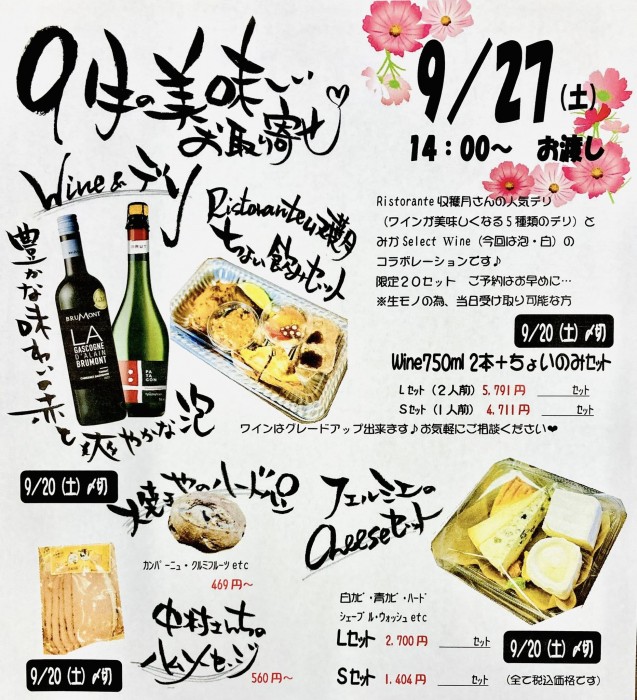 9月の美味しいお取り寄せ♡
9/27(土)
14：00〜 お渡し
Wine & デリ
Ristorante収穫月
ちょい飲みセット
豊かな味わいの赤と爽やかな泡
Ristorante収穫月さんの人気デリ
(ワインが美味しくなる５種類のデリ)と
みカSelect Wine（今回は泡・白）の
コラボレーションです♪
限定２０セット ご予約はお早めに…
※生モノの為、当日受け取り可能な方
BRUMONT
LA
GASCOGNE
D'ALAIN
BRUMONT
BRUT
PATAGON
9/20（土）〆切
Wine750ml 2本＋ちょいのみセット
Lセット（２人前）5.791円 ____セット
Sセット（１人前） 4.711円 ____セット
ワインはグレードアップ出来ます♪お気軽にご相談ください❤
9/20（土）〆切
焼きやのハードパン
カンパーニュ・クルミフルーツetc
469円〜
フェルミエの
Cheeseセット
中村さんちの
ハム・ソーセージ
560円〜
9/20（土）〆切
白カビ・青カビ・ハード
シェーブル・ウォッシュetc
Lセット 2.700円 ____セット
9/20（土）〆切
Sセット 1.404円 ____セット （全て税込価格です）